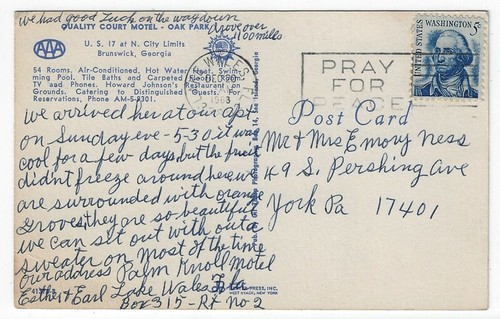 we had good luck on the way down
drove over
1100 miles
QUALITY COURT MOTEL - OAK PARK
AAA
U. S. 17 at N. City Limits
Brunswick, Georgia
54 Rooms. Air-Conditioned, Hot Water Heat, Swim-
ming Pool. Tile Baths and Carpeted
TV and Phones. Howard Johnson's Restaurant on
Grounds. Catering to Distinguished Guests. For
Reservations, Phone AM-5-8301.
we arrived her at our apt
on Sunday eve - 5-30 it was
cool for a few days but the fruit
didn't freeze around here, we
are surrounded with orange
groves, they are so beautiful
we can sit out with out a
sweater on most of the time
our address Palm Knoll Motel
Esther & Earl Lake Wales Fla
Box 315 - Rt No 2
LAKE WALES, FLA.
PRAY
FOR
PEACE
UNITED STATES
WASHINGTON
5c
Post Card
Mr & Mrs Emory Ness
49 S. Pershing Ave
York Pa 17401